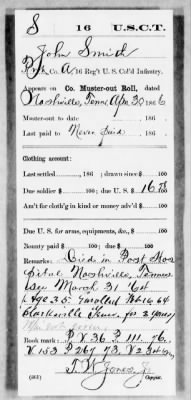 S 16 U.S.C.T.
John Smith
Co. A, 16 Reg't U. S. Col'd Infantry.
Appears on Co. Muster-out Roll, dated
Nashville, Tenn Apr 30, 1866
Muster-out to date 186 .
Last paid to Never paid , 186 .
Clothing account:
Last settled , 186 ; drawn since $ 100
Due soldier $ 100; due U. S. $ 100
Am't for cloth'g in kind or money adv'd $ 100
Due U. S. for arms, equipments, &c., $ 100
Bounty paid $ 100; due $ 100
Remarks: Died in Post Hos
pital Nashville, Tennes
see March 31
Age 35. Enrolled 64
Clarksville Tenn. for 3 years
Book mark:
T. W. Jones, Jr.
Copyist.